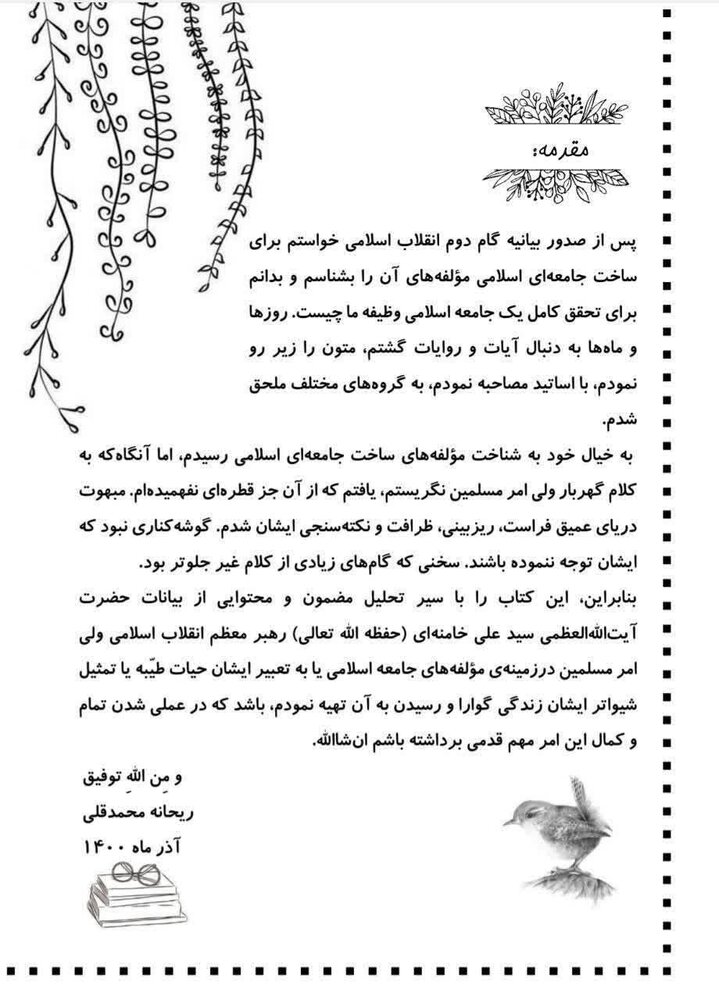 مقدمه:
پس از صدور بیانیه گام دوم انقلاب اسلامی خواستم برای
ساخت جامعه‌ای اسلامی مؤلفه‌های آن را بشناسم و بدانم
برای تحقق کامل یک جامعه اسلامی وظیفه ما چیست. روزها
و ماه‌ها به دنبال آیات و روایات گشتم، متون را زیر رو
نمودم، با اساتید مصاحبه نمودم، به گروه‌های مختلف ملحق
شدم.
به خیال خود به شناخت مؤلفه‌های ساخت جامعه‌ای اسلامی رسیدم، اما آنگاه‌که به
کلام گهربار ولی امر مسلمین نگریستم، یافتم که از آن جز قطره‌ای نفهمیده‌ام. مبهوت
دریای عمیق فراست، ریزبینی، ظرافت و نکته‌سنجی ایشان شدم. گوشه‌کناری نبود که
ایشان توجه ننموده باشند. سخنی که گام‌های زیادی از کلام غیر جلوتر بود.
بنابراین، این کتاب را با سیر تحلیل مضمون و محتوایی از بیانات حضرت
آیت‌الله‌العظمی سید علی خامنه‌ای (حفظه الله تعالی) رهبر معظم انقلاب اسلامی ولی
امر مسلمین درزمینه‌ی مؤلفه‌های جامعه اسلامی یا به تعبیر ایشان حیات طیّبه یا تمثیل
شیواتر ایشان زندگی گوارا و رسیدن به آن تهیه نمودم، باشد که در عملی شدن تمام
و کمال این امر مهم قدمی برداشته باشم ان‌شاالله.
و مِن اللهِ توفیق
ریحانه محمدقلی
آذر ماه ۱۴۰۰